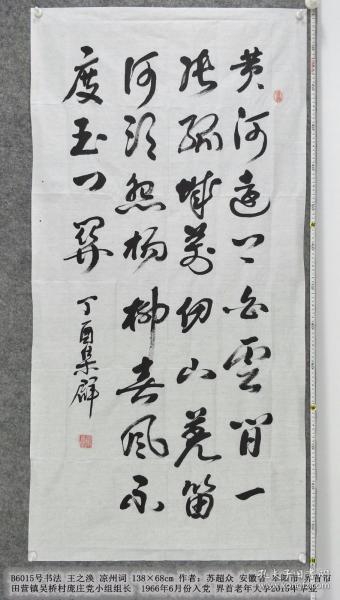 黄河遠上白雲间一
片孤城萬仞山羌笛
何须怨杨柳春风不
度玉门關
丁酉集群
B6015号书法 王之涣 凉州词 138×68cm 作者：苏超众 安徽省阜阳市 界首市
田营镇吴桥村庞庄党小组组长 1966年6月份入党 界首老年大学2015年毕业